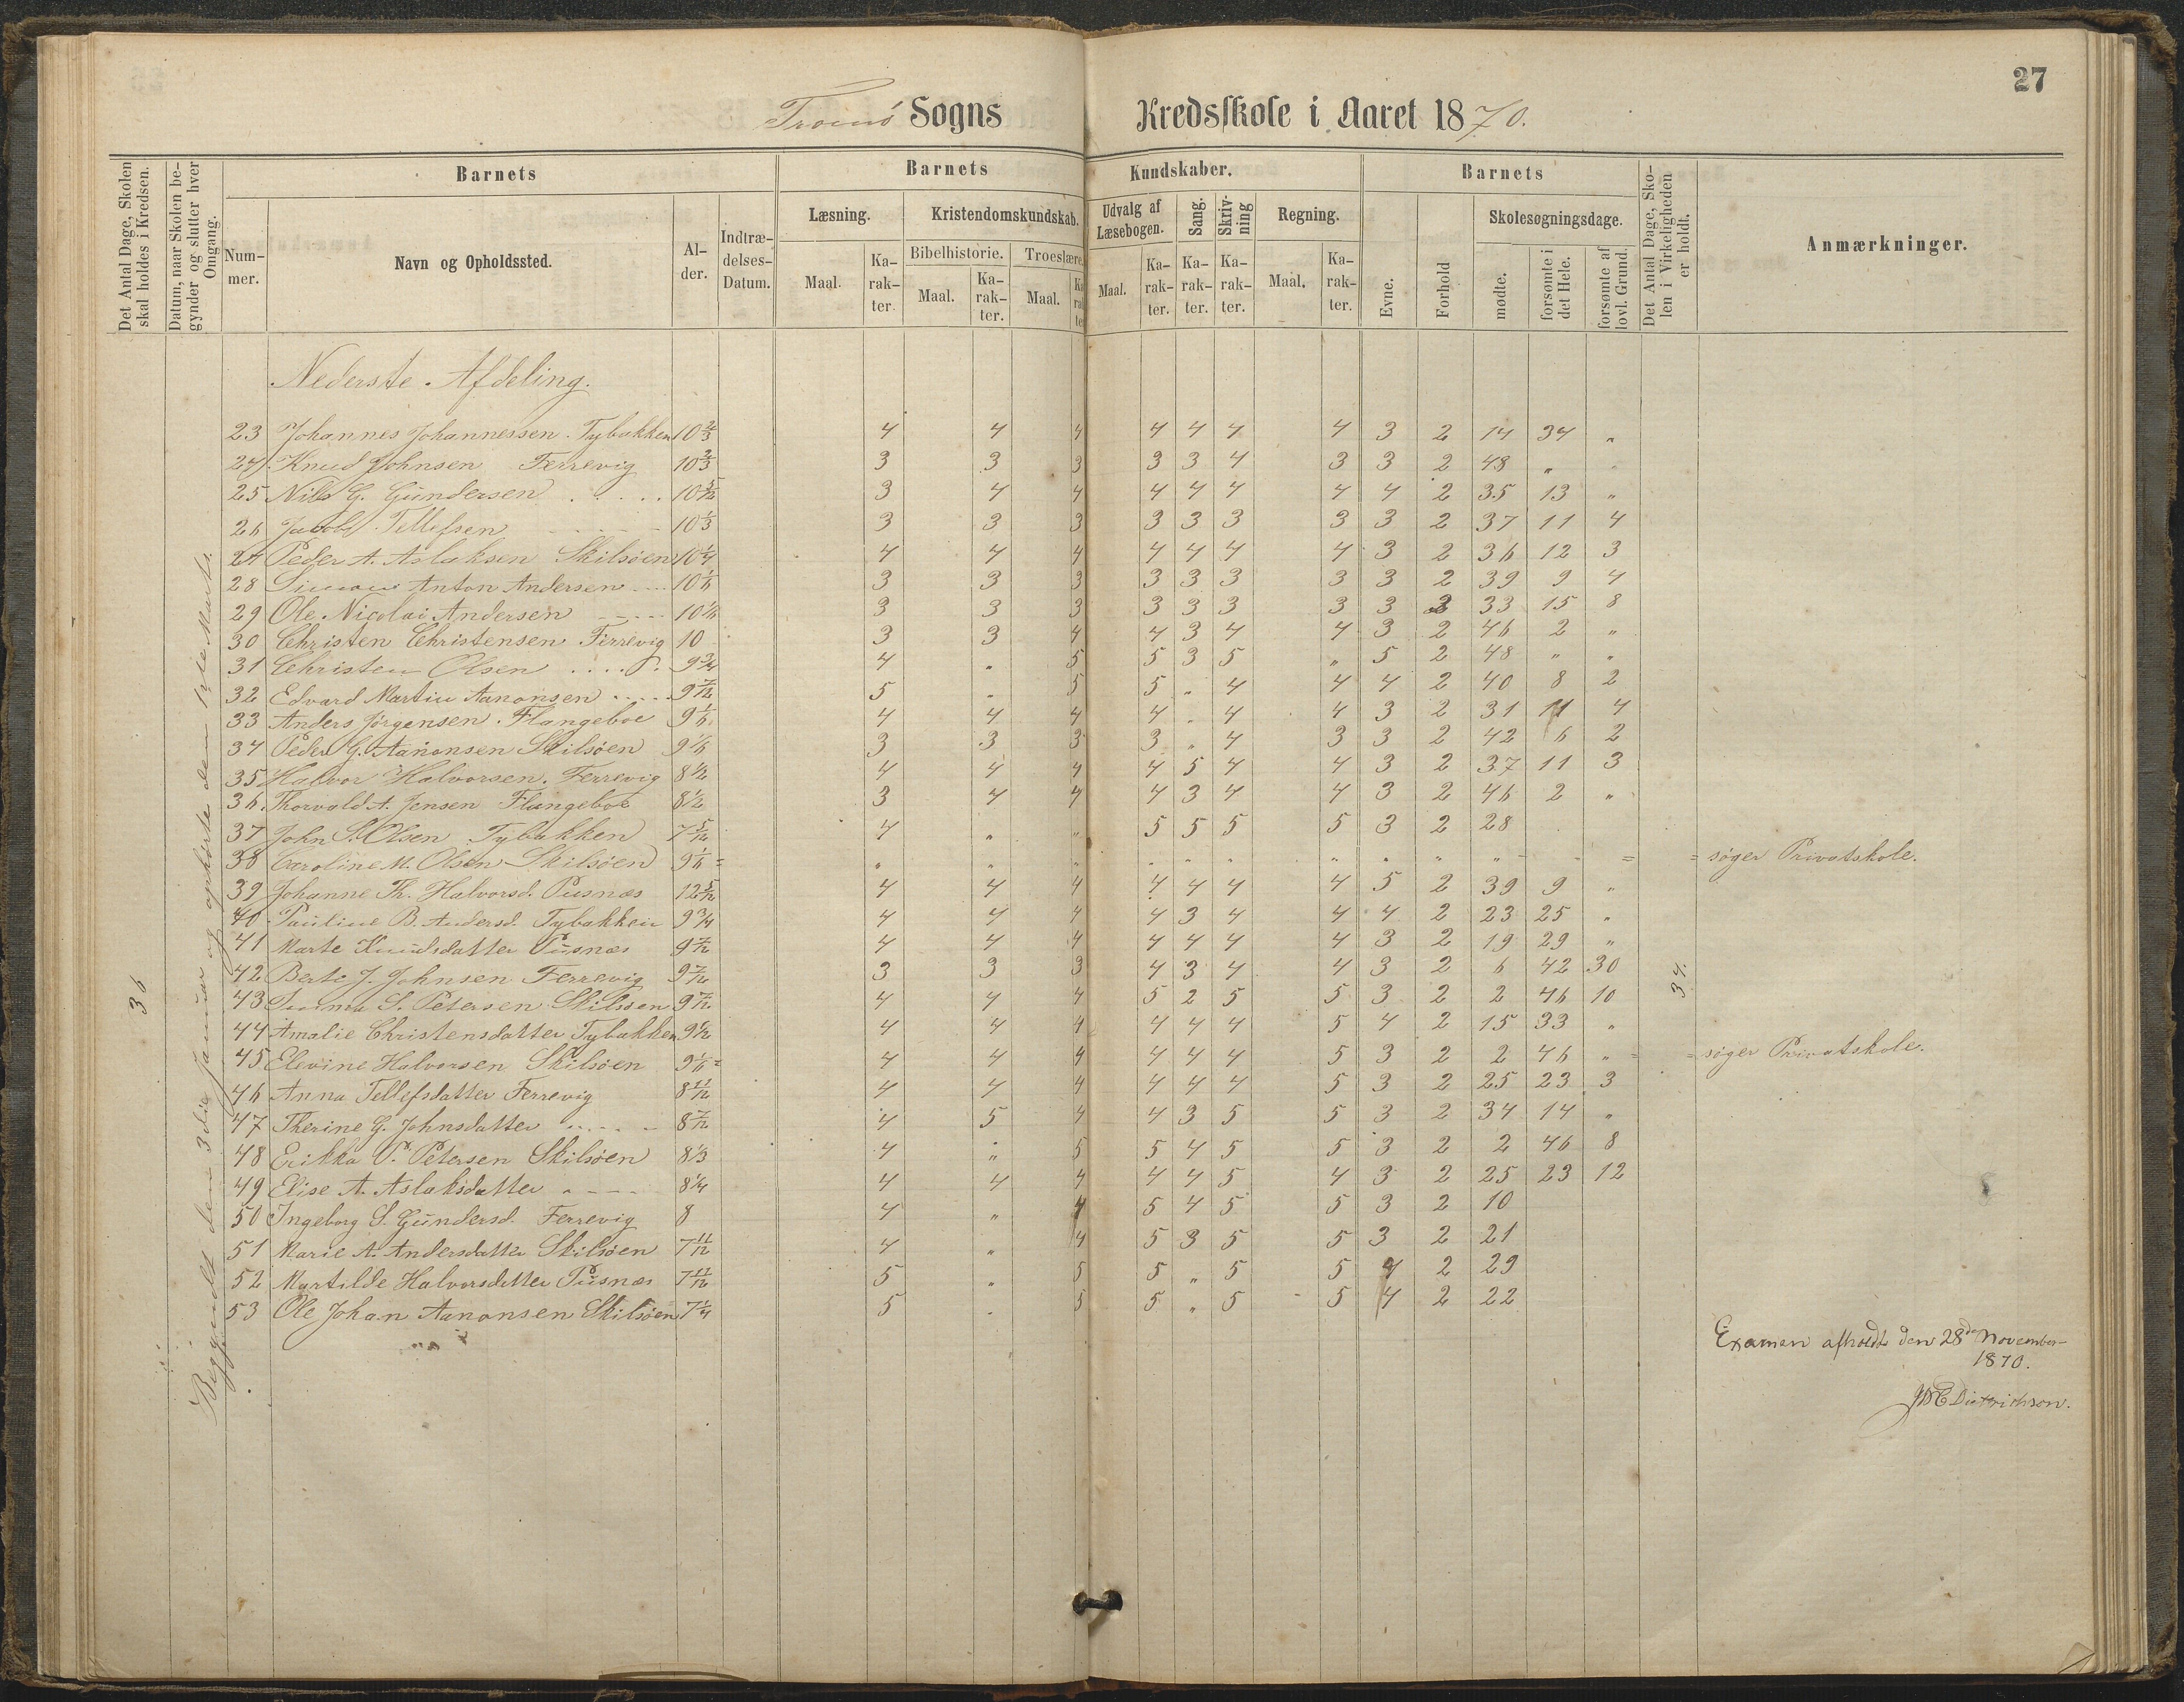 27
Tromø Sogns Kredsskole i Aaret 1870.
Det Antal Dage, Skolen skal holdes i Kredsen.
Datum, naar Skolen begynder og slutter hver Omgang.
Barnets
Nummer.
Navn og Opholdssted.
Alder.
Indtrædelses-Datum.
Barnets Kundskaber.
Læsning.
Maal.
Karakter.
Kristendomskundskab.
Bibelhistorie.
Maal.
Karakter.
Troeslære.
Maal.
Karakter
Udvalg af Læsebogen.
Maal.
Karakter.
Sang.
Karakter.
Skrivning
Karakter.
Regning.
Maal.
Karakter.
Barnets
Evne.
Forhold
Skolesøgningsdage.
mødte.
forsømte i det Hele.
forsømte af lovl. Grund.
Det Antal Dage, Skolen i Virkeligheden er holdt.
Anmærkninger.
Nederste Afdeling.
23 Johannes Johannessen. Tybakken 10 2/3 4 4 4 4 4 4 4 3 2 14 34 "
24 Knud Johnsen Ferrevig 10 2/3 3 3 3 3 3 4 3 3 2 48 " "
25 Nils G. Gundersen . . . . 10 5/12 3 4 4 4 4 4 4 4 2 35 13 "
26 Jacob Tellefsen - - - - 10 1/3 3 3 3 3 3 3 3 3 2 37 11 4
27 Peder A. Aslaksen Skilsøen 10 1/4 4 4 4 4 4 4 4 3 2 36 12 3
28 Simon Anton Andersen - - - 10 1/6 3 3 3 3 3 3 3 3 2 39 9 4
29 Ole Nicolai Andersen - - - - 10 1/6 3 3 3 3 3 3 3 3 2 33 15 8
30 Christen Christensen Ferrevig 10 3 3 4 4 3 4 4 3 2 46 2 "
31 Christen Olsen . . . . . 9 3/4 4 " 5 5 3 5 " 5 2 48 " "
32 Edvard Martin Aanonsen . . . . . 9 7/12 5 " 5 5 " 4 4 4 2 40 8 2
33 Anders Jørgensen. Flangeboe 9 1/6 4 4 4 4 " 4 4 3 2 31 11 4
34 Peder G. Aanonsen Skilsøen 9 1/6 3 3 3 3 " 4 3 3 2 42 6 2
35 Halvor Halvorsen. Ferrevig 8 1/2 4 4 4 4 5 4 4 3 2 37 11 3
36 Thorvald A. Jensen Flangeboe 8 1/2 3 4 4 4 3 4 4 3 2 46 2 "
37 John S. Olsen Tybakken 7 5/12 4 " " 5 5 5 5 3 2 28
38 Caroline M. Olsen Skilsøen 9 1/6 = " " " " " " " " " " = = søger Privatskole.
39 Johanne Th. Halvorsd. Pusnæs 12 5/12 4 4 4 4 4 4 4 5 2 39 9 "
40 Pauline B. Andersd. Tybakken 9 3/4 4 4 4 4 3 4 4 4 2 23 25 "
41 Marte Knudsdatter Pusnæs 9 7/12 4 4 4 4 4 4 4 3 2 19 29 "
42 Berte J. Johnsen Ferrevig 9 7/12 3 3 3 4 3 4 4 3 2 6 42 30
43 S. Petersen Skilsøen 9 7/12 4 4 4 5 2 5 5 3 2 2 46 10
44 Amalie Christensdatter Tybakken 9 1/2 4 4 4 4 4 4 5 4 2 15 33 "
45 Elevine Halvorsen Skilsøen 9 1/6 = 4 4 4 4 4 4 5 3 2 2 46 " = = søger Privatskole.
46 Anna Tellefsdatter Ferrevig 8 11/12 4 4 4 4 4 4 5 3 2 25 23 3
47 Therine G. Johnsdatter . . . . - 8 7/12 4 5 4 4 3 5 5 3 2 34 14 "
48 Erikka P. Petersen Skilsøen 8 1/3 4 " 5 5 4 5 5 3 2 2 46 8
49 Elise A. Aslaksdatter - - - - 8 1/4 4 4 4 4 4 5 4 3 2 25 23 12
50 Ingeborg S. Gundersd. Ferrevig 8 4 " 4 5 4 5 5 3 2 10
51 Marie A. Andersdatter Skilsøen 7 11/12 4 " 4 5 3 5 5 3 2 21
52 Martilde Halvorsdatter Pusnæs 7 11/12 5 " 5 5 " 5 5 4 2 29
53 Ole Johan Aanonsen Skilsøen 7 1/4 5 " 5 5 " 5 5 4 2 22
36
Begyndt den 3die Januar og ophørte den 12te Marts.
34.
Examen afholdt den 28de November
1870.
Dietrichson.